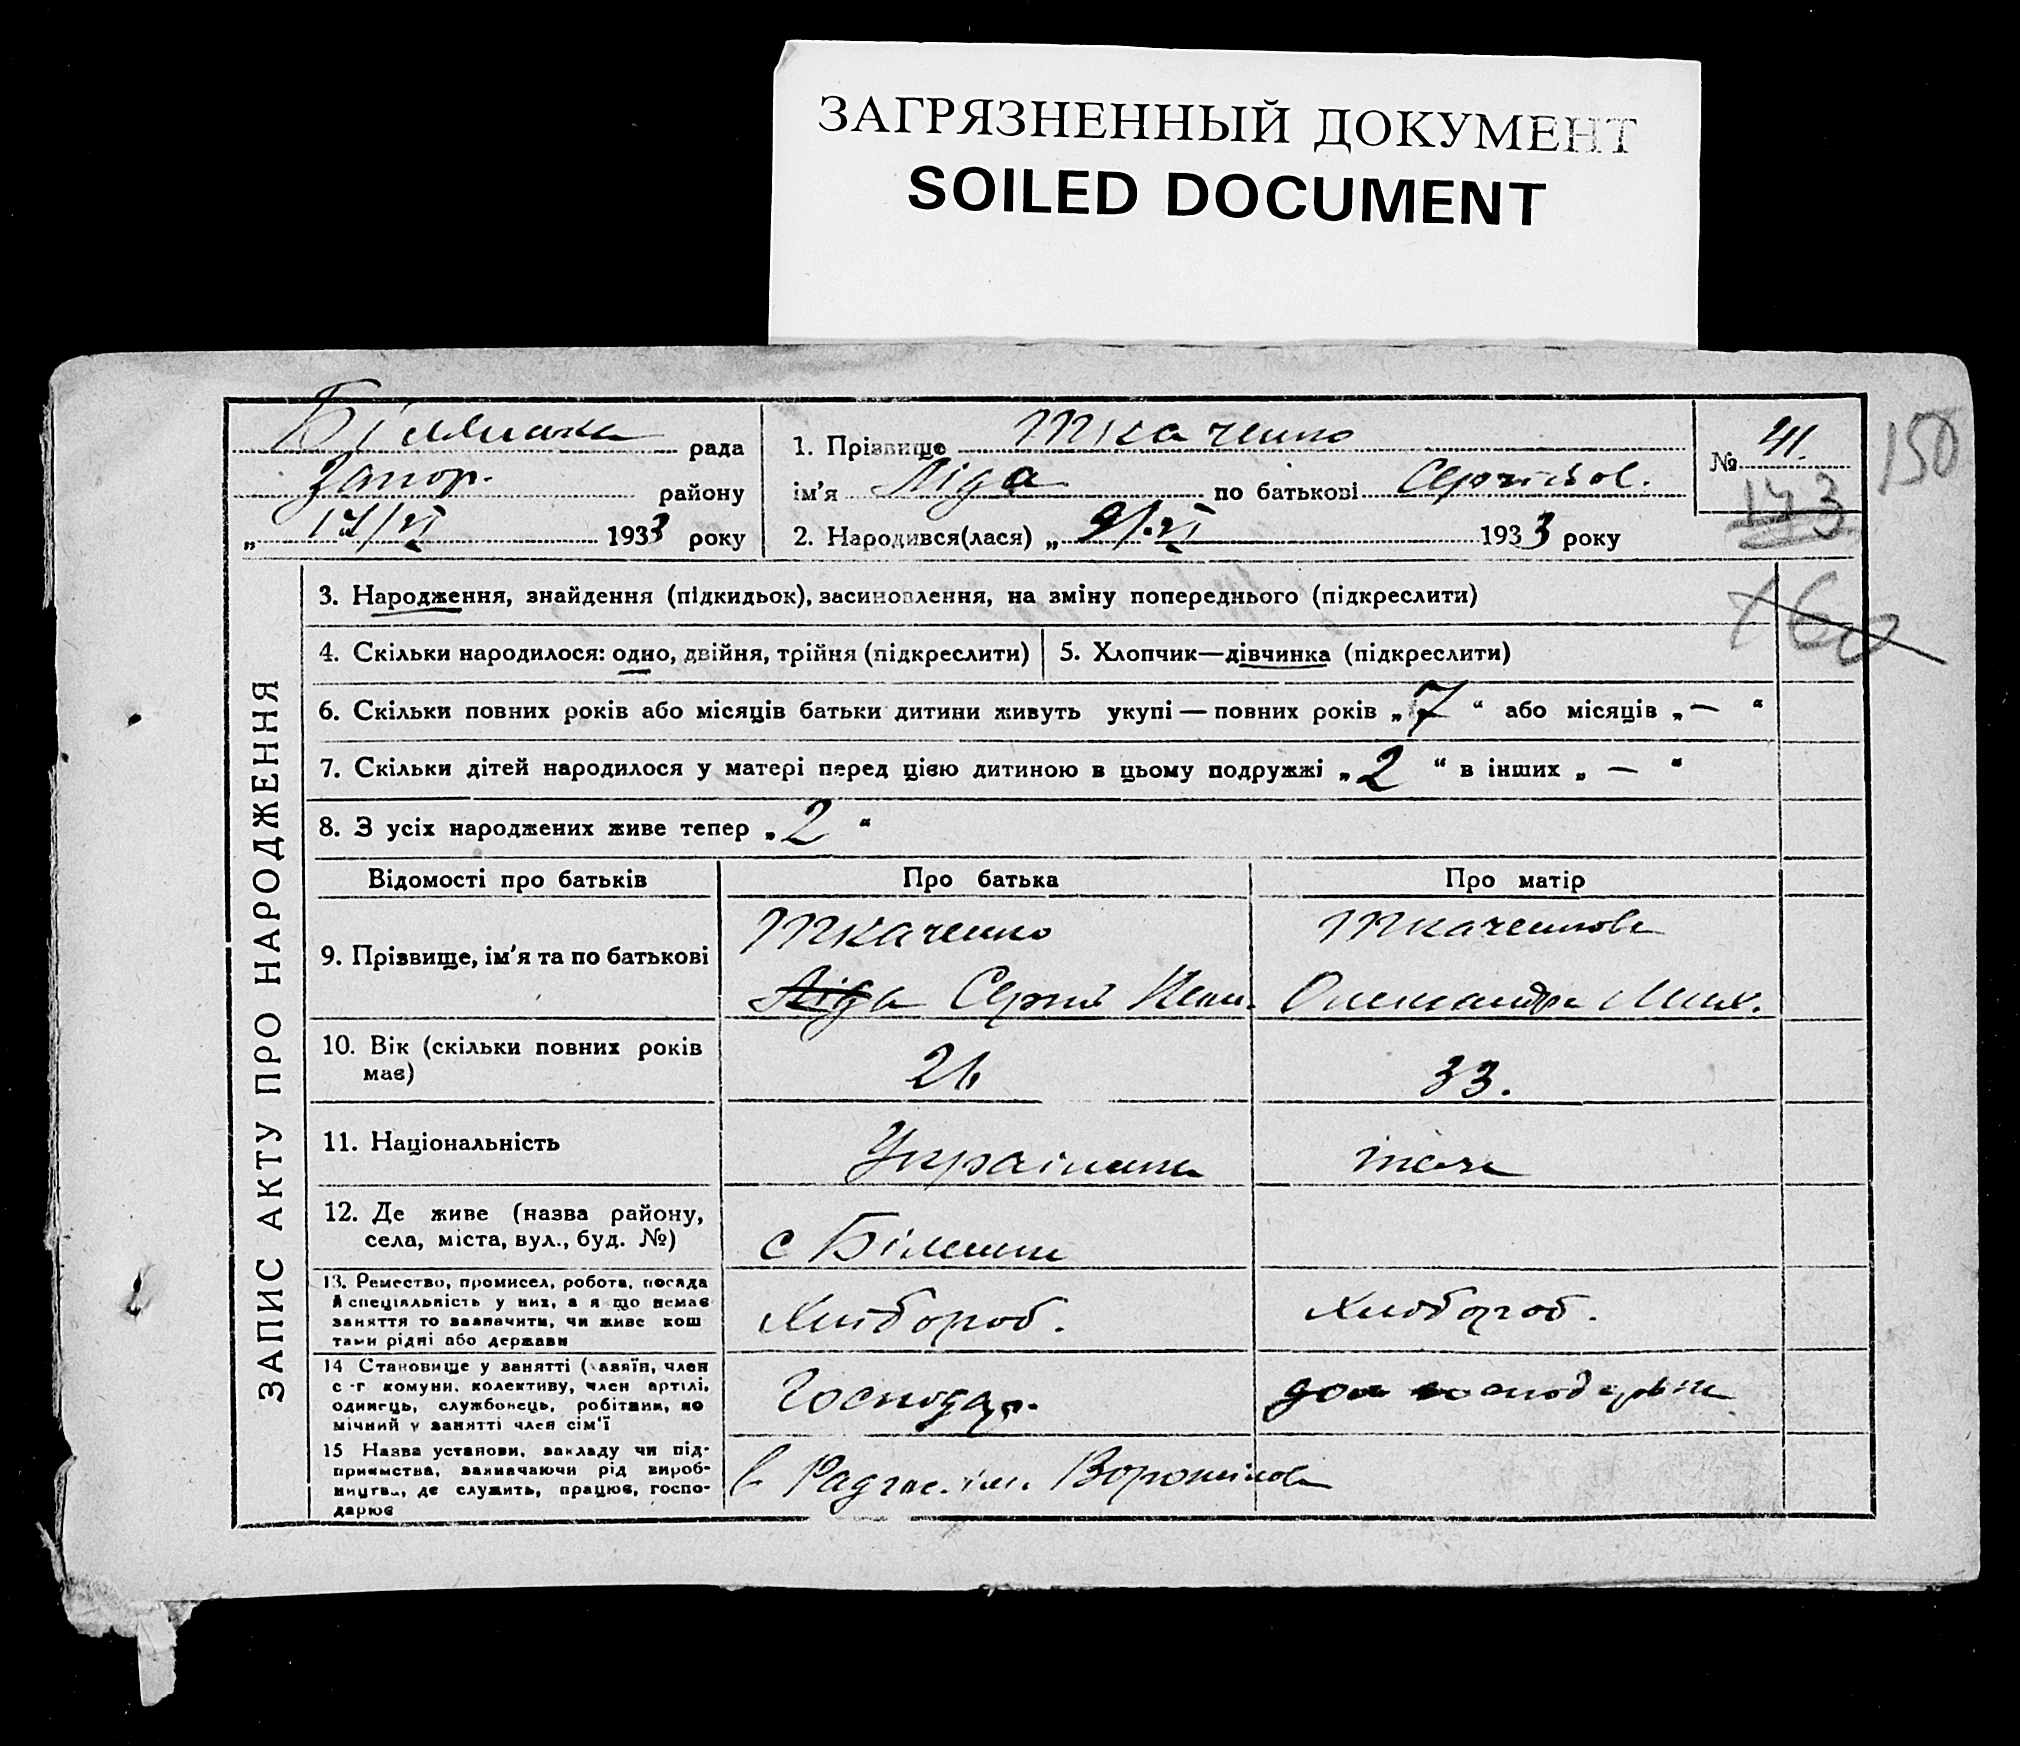 ЗАГРЯЗНЕННЫЙ ДОКУМЕНТ
SOILED DOCUMENT
рада
Запор. району
„17/VI 1933 року
1. Прізвище Ткаченко
ім'я Ліда по батькові
2. Народився(лася) „9/VI 1933 року
№ 41.
143
150
160
ЗАПИС АКТУ ПРО НАРОДЖЕННЯ
3. Народження, знайдення (підкидьок), засиновлення, на зміну попереднього (підкреслити)
4. Скільки народилося: одно, двійня, трійня (підкреслити)
5. Хлопчик—дівчинка (підкреслити)
6. Скільки повних років або місяців батьки дитини живуть укупі — повних років „7“ або місяців „—“
7. Скільки дітей народилося у матері перед цією дитиною в цьому подружжі „2“ в інших „—“
8. З усіх народжених живе тепер „2“
Відомості про батьків Про батька Про матір
9. Прізвище, ім'я та по батькові
Ткаченко
Ліда Сергій Иван.
Ткаченкова
Олександра Мих.
10. Вік (скільки повних років
має)
33.
11. Національність
Українець
12. Де живе (назва району,
села, міста, вул., буд. №)
13. Ремество, промисел, робота, посада
й спеціяльність у них, а якщо немає
заняття то зазначити, чи живе кош
тами рідні або держави
Хлібороб.
Хлібороб.
14 Становище у занятті (хазяїн, член
с-г комуни, колективу, член артілі,
одинець, службовець, робітник, по
мічний у занятті член сім'ї
Господар.
дом господарка
15 Назва установи, закладу чи під-
приємства, зазначаючи рід вироб-
ництва, де служить, працює, госпо-
дарює
в Радгос. ім. Ворошилова